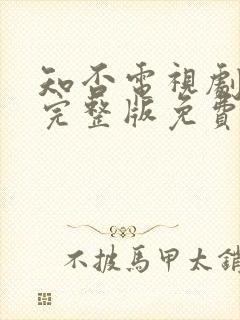 知否電視劇
完整版免費
不披馬甲太銷